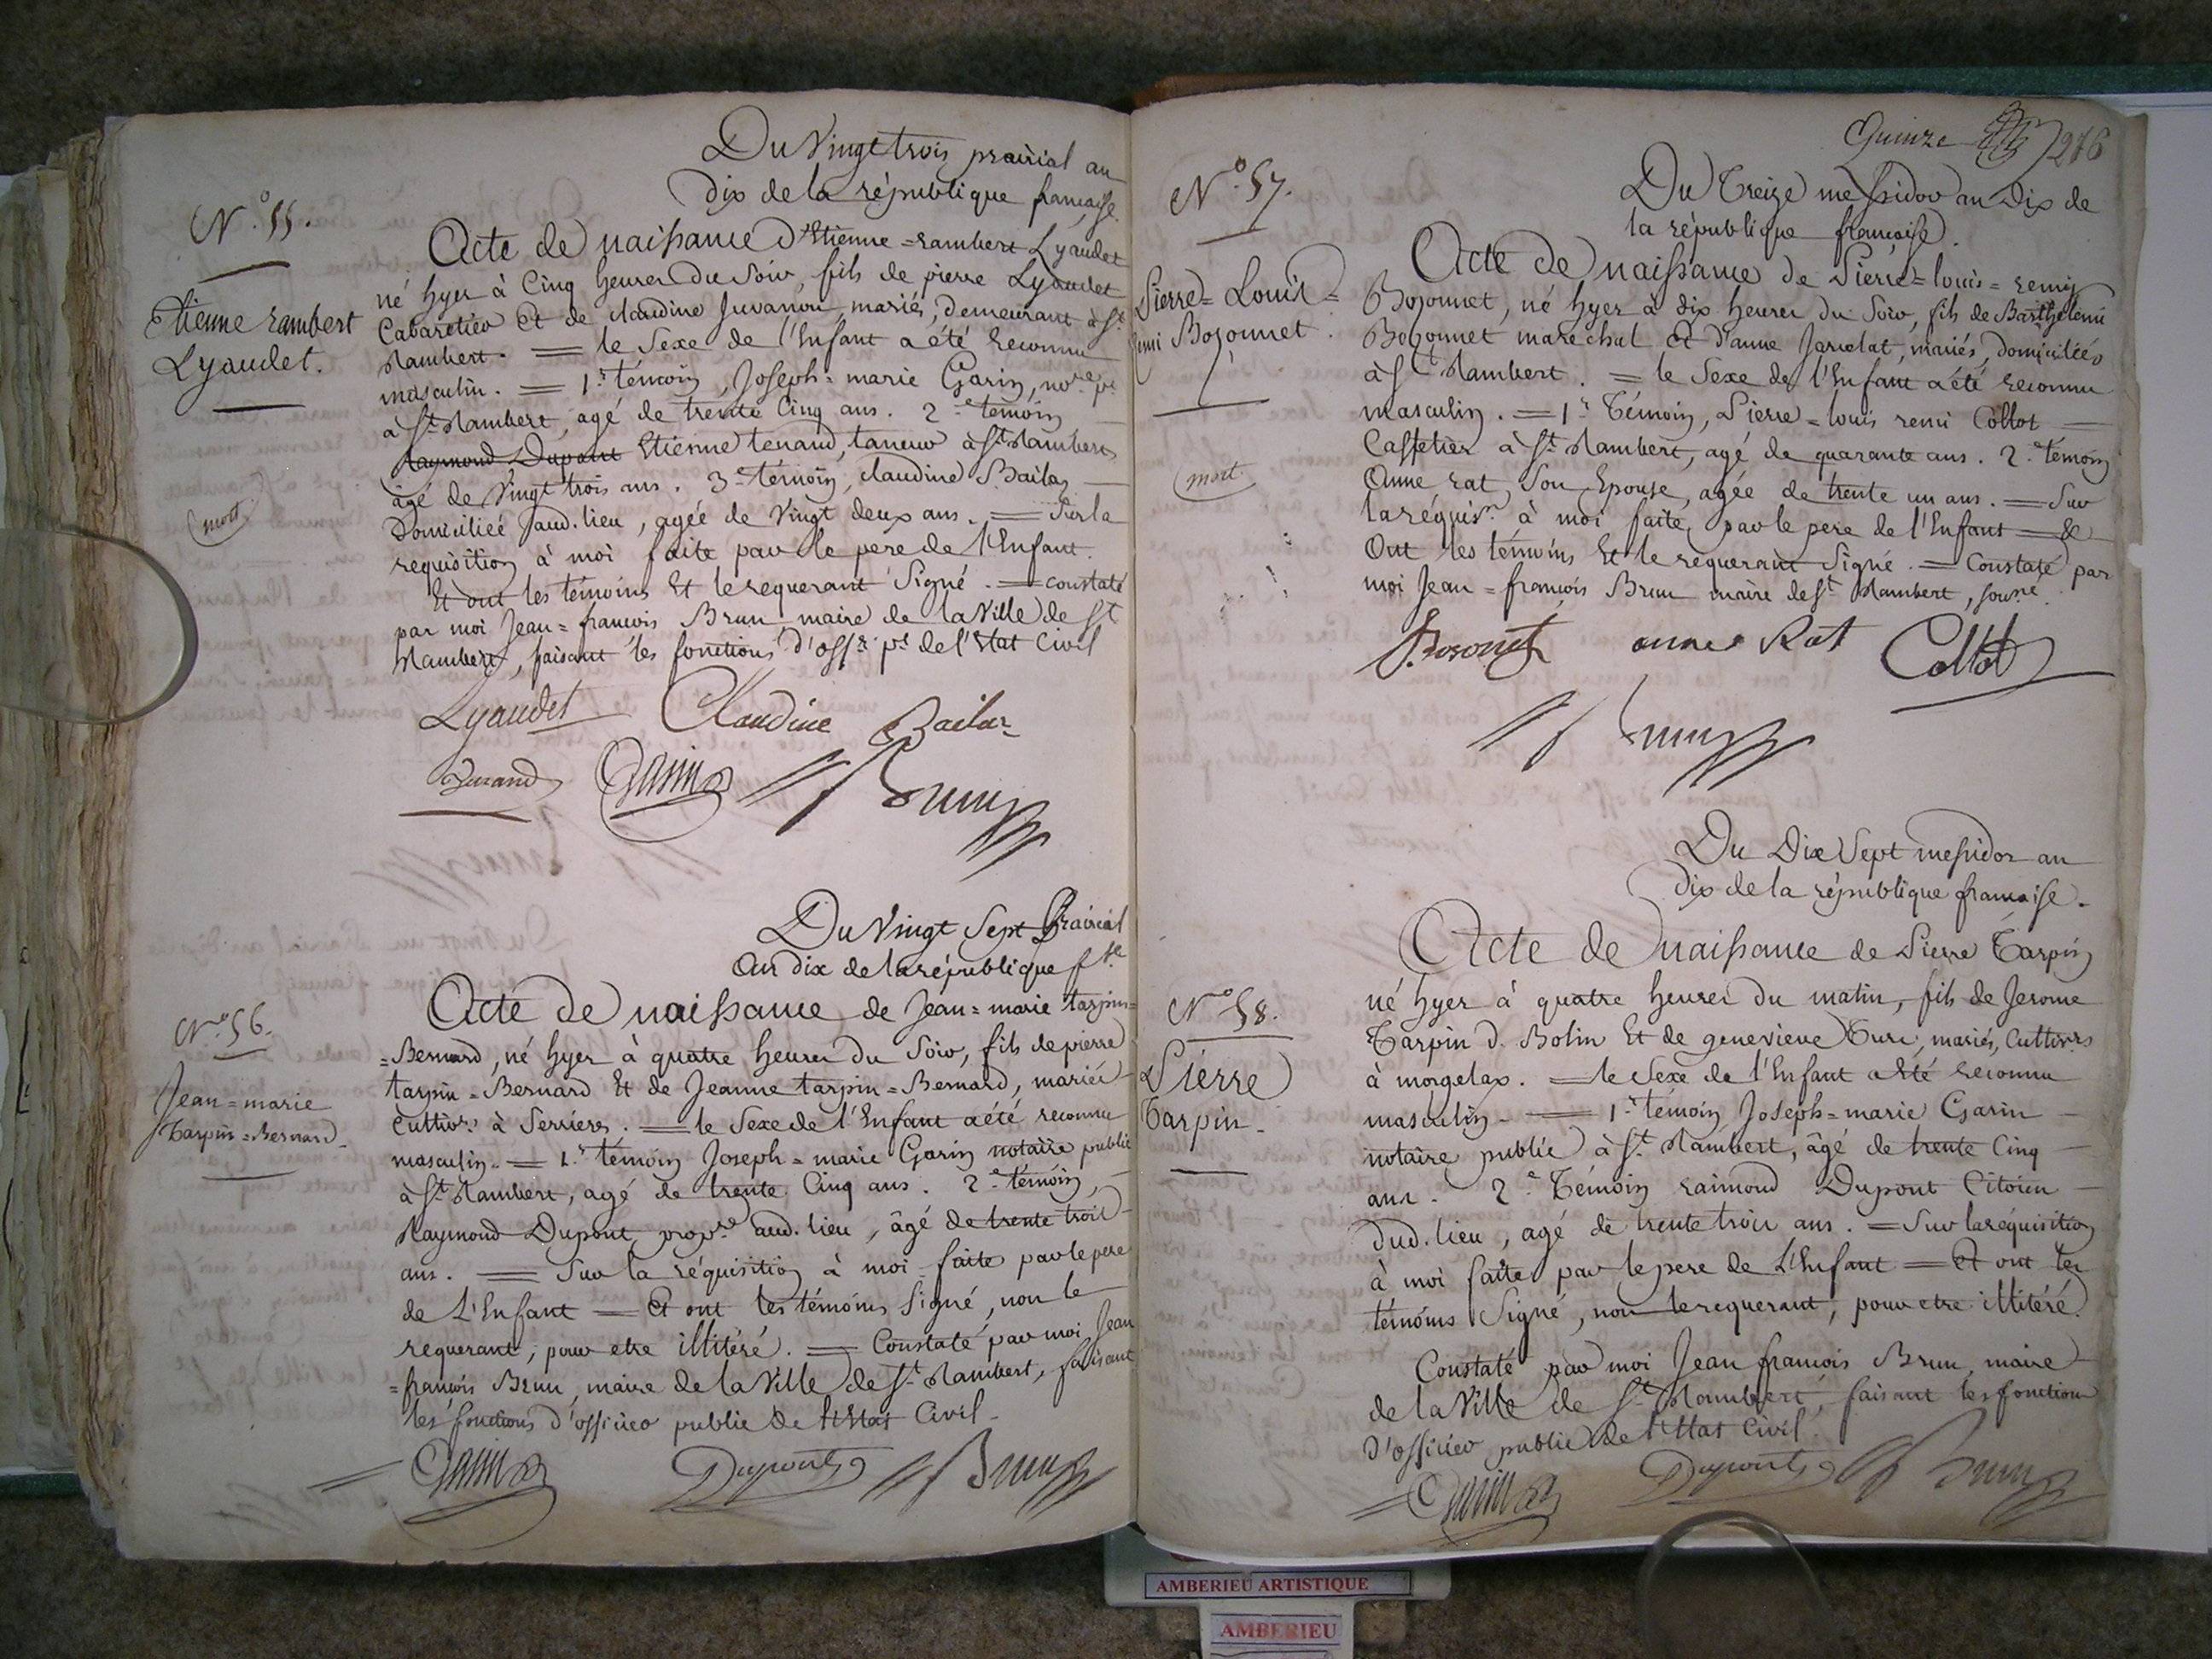 Du Vingt trois prairial an
dix de la république française.
N.° 55.
Etienne rambert
Lyaudet.
mort
Acte de naissance d'Etienne=rambert Lyaudet
né hyer à Cinq heures du Soir, fils de pierre Lyaudet
Cabaretier et de claudine Juvanon, mariés, demeurant à St
Rambert. = le Sexe de l'Enfant a été reconnu
masculin. = 1.r témoin, Joseph=marie Garin, no.re p.c
à St Rambert, agé de trente Cinq ans. 2.e témoin
Raymond Dupont Etienne tenand, taneur à St Rambert
âgé de Vingt trois ans. 3.e témoin, claudine Bailas
Domiciliée aud. lieu, agée de Vingt deux ans. = Sur la
requisition à moi faite par le pere de l'Enfant.
Et ont les témoins Et le requerant Signé. = constaté
par moi Jean=francois Brun maire de la Ville de St
Rambert, faisant les fonctions d'off.r p.c de l'Etat Civil
Lyaudet Claudine Bailas
Garin Brun
Du Vingt Sept Prairial
An dix de la république f.se
N.° 56.
Jean=marie
Tarpin=Bernard
Acte de naissance de Jean=marie tarpin=
=Bernard, né hyer à quatre heures du Soir, fils de pierre
tarpin=Bernard Et de Jeanne tarpin=Bernard, mariés
Cultiv.rs à Serrieres. = le Sexe de l'Enfant a été reconnu
masculin. = 1.r témoin Joseph=marie Garin notaire public
à St Rambert, agé de trente Cinq ans. 2.e témoin,
Raymond Dupont, prop.re aud. lieu, âgé de trente trois
ans. = Sur la réquisition à moi faite par le pere
de L'Enfant = Et ont les témoins Signé, non le
requerant, pour etre illitéré. = Constaté par moi Jean
=françois Brun, maire de la Ville de St Rambert, faisant
les fonctions d'officier public de l'Etat Civil.
Garin Dupont Brun
Quinze 276
Du Treize messidor an Dix de
la république française.
N.° 57.
Pierre=Louis=
remi Bozonnet.
mort
Acte de naissance de Pierre=louis=remy
Bozonnet, né hyer à dix heures du Soir, fils de Barthelemi
Bozonnet marechal et d'anne Jarvelat, mariés, domiciliés
à St Rambert. = le Sexe de l'Enfant a été reconnu
masculin. = 1.r Témoin, Pierre=louis remi Collot
Caffetier à St Rambert, agé de quarante ans. 2.e témoin
Anne rat, Son Epouse, agée de trente un ans. = Sur
la réquis.n à moi faite, par le pere de l'Enfant = &
Ont les témoins Et le requerant Signé. = Constaté par
moi Jean=françois Brun maire de St Rambert, sous.né
Bozonet anne Rat Collot
Brun
Du Dix Sept messidor an
dix de la république française.
N.° 58.
Pierre
Tarpin.
Acte de naissance de Pierre Tarpin
né hyer à quatre heures du matin, fils de Jerome
Tarpin d. Bolin Et de genevieve Turc, mariés, Cultiv.rs
à morgelax. = le Sexe de l'Enfant a Eté reconnu
masculin. = 1.r témoin Joseph=marie Garin
notaire public à St Rambert, âgé de trente Cinq
ans. 2.e Témoin raimond Dupont Citoien
dud. lieu, agé de trente trois ans. = Sur la réquisition
à moi faite par le pere de L'Enfant = Et ont les
témoins Signé, non le requerant, pour etre illitéré.
Constaté par moi Jean françois Brun, maire
de la Ville de St Rambert, faisant les fonctions
d'officier public de l'Etat Civil.
Garin Dupont Brun
AMBERIEU ARTISTIQUE
AMBERIEU